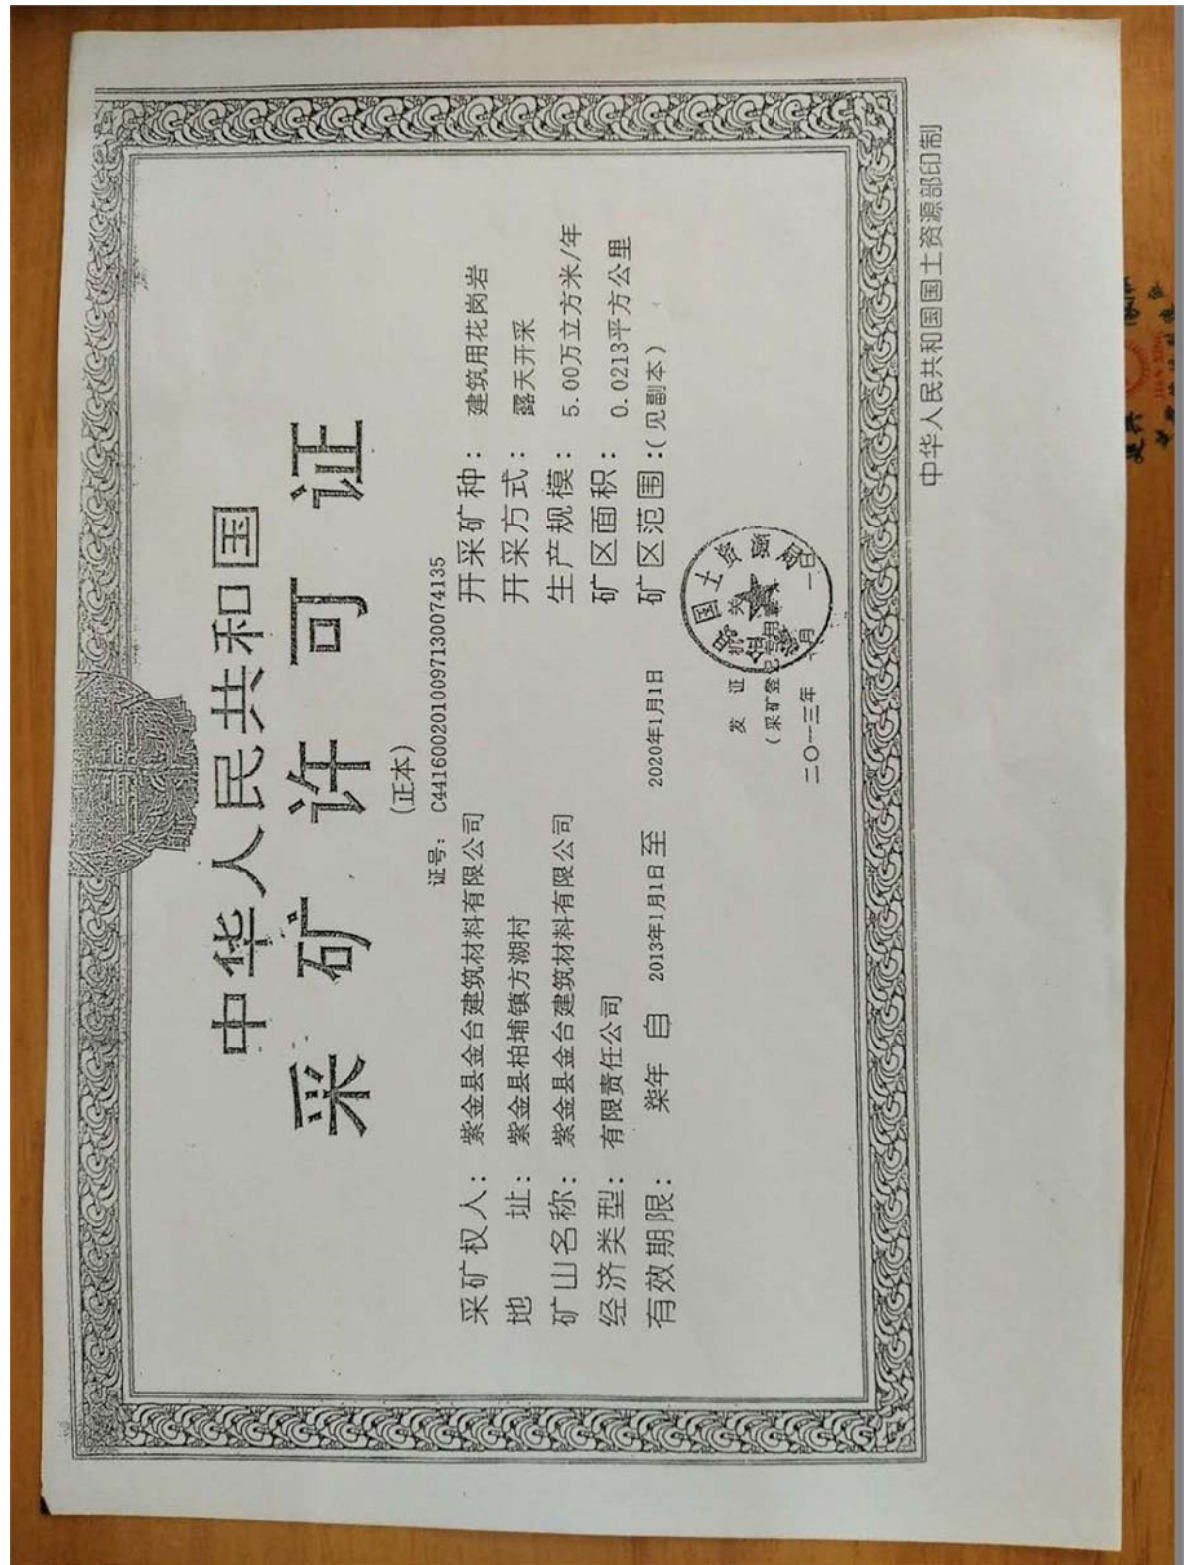 中华人民共和国
采矿许可证
(正本)
证号: C4416002010097130074135
采矿权人: 紫金县金台建筑材料有限公司
地 址: 紫金县柏埔镇方湖村
矿山名称: 紫金县金台建筑材料有限公司
经济类型: 有限责任公司
有效期限: 柒年 自 2013年1月1日至 2020年1月1日
开采矿种: 建筑用花岗岩
开采方式: 露天开采
生产规模: 5.00万立方米/年
矿区面积: 0.0213平方公里
矿区范围:(见副本)
国土资源局
发证机关
(采矿登记专用章)
二〇一三年 月一日
中华人民共和国国土资源部印制